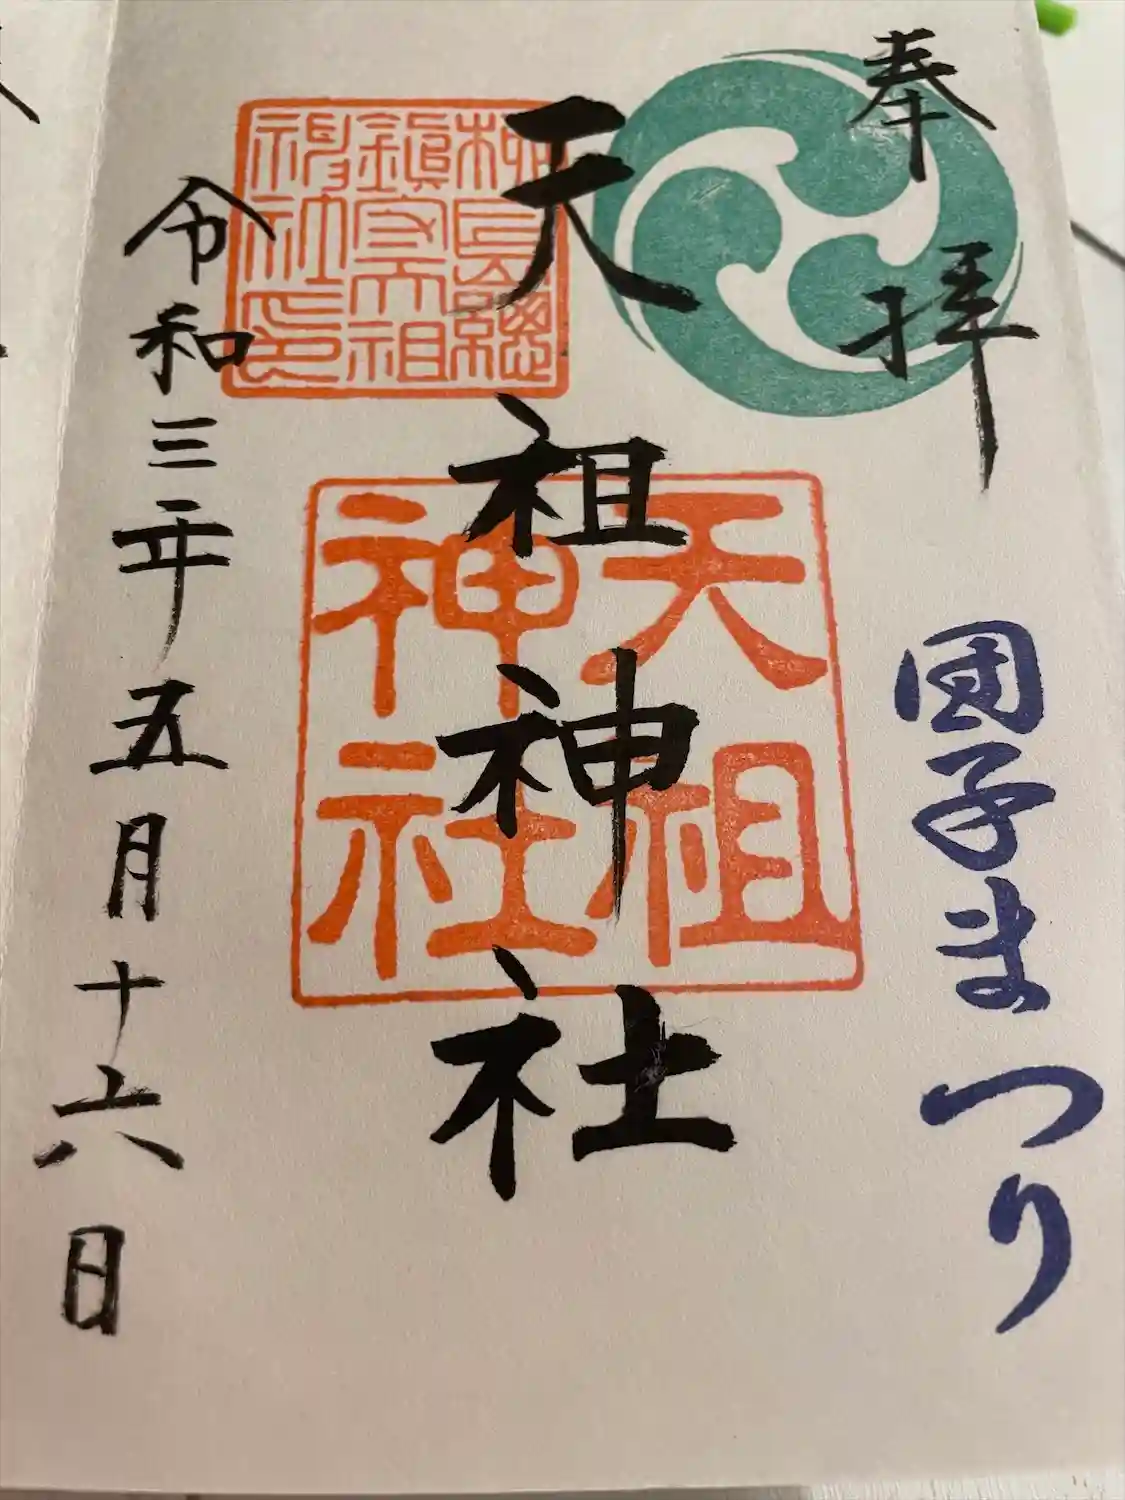 奉拝
団子まつり
天祖神社
天祖
神社
柳島總
鎮守天祖
神社印
令和三年五月十六日